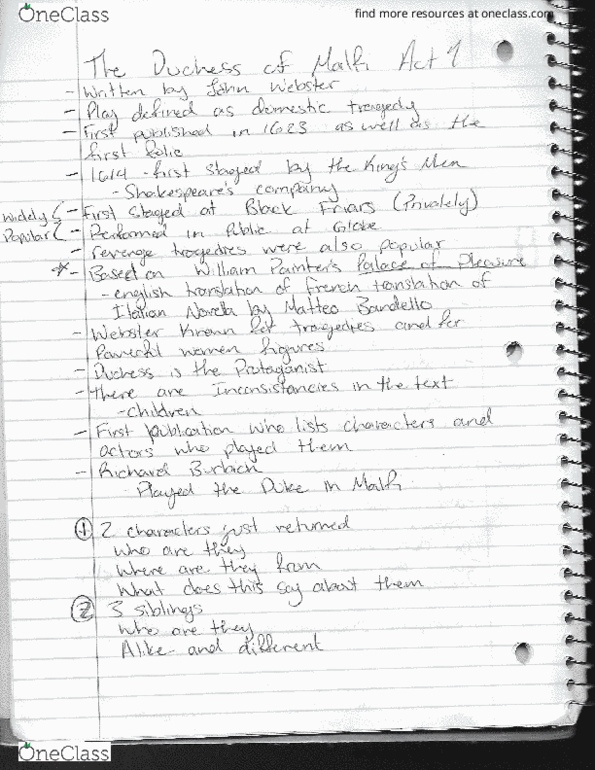 OneClass
find more resources at oneclass.com
The Duchess of Malfi Act 1
- Written by John Webster
- Play defined as domestic tragedy
- First published in 1623 as well as the
first folio
- 1614 - first staged by the King's Men
- Shakespeare's company
Widely - First staged at Black Friars (Privately)
Popular - Performed in Public at Globe
- revenge tragedies were also popular
* - Based on William Painter's Palace of Pleasure
- english translation of French translation of
Italian Novela by Matteo Bandello
- Webster Known for tragedies and for
Powerful women figures
- Duchess is the Protaganist
- there are Inconsistancies in the text
- children
- First publication who lists characters and
actors who played them
- Richard Burbach
- Played the Duke in Malfi
1 2 characters just returned
who are they
Where are they from
What does this say about them
2 3 siblings
who are they
Alike and different
OneClass